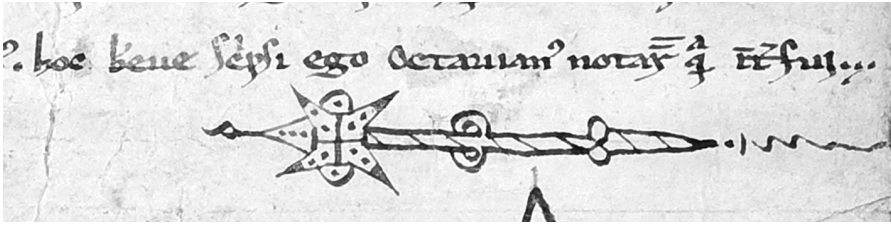 hoc breue scripsi ego octauian' notar' q' ... fui...